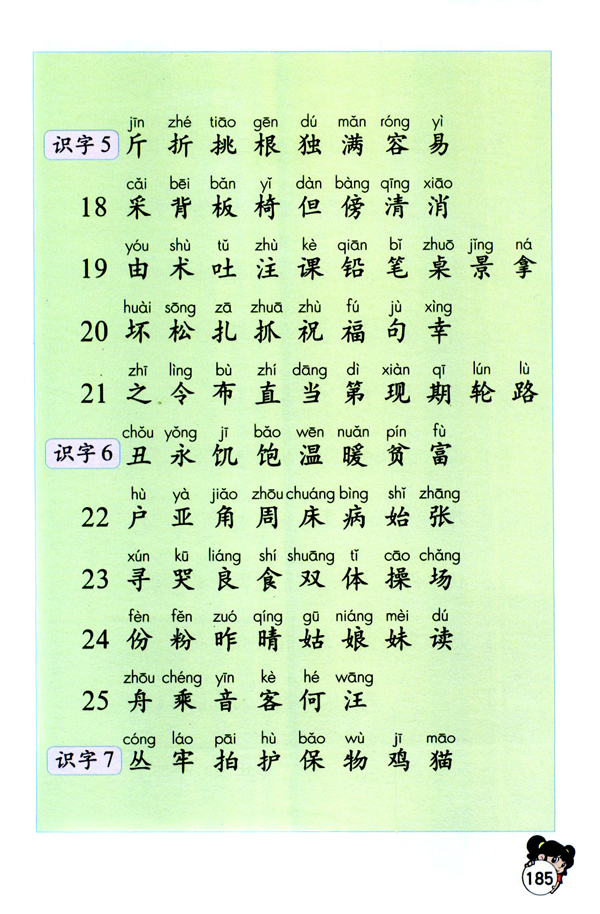 jīn zhé tiāo gēn dú mǎn róng yì
识字5 斤 折 挑 根 独 满 容 易
cǎi bēi bǎn yǐ dàn bàng qīng xiāo
18 采 背 板 椅 但 傍 清 消
yóu shù tǔ zhù kè qiān bǐ zhuō jǐng ná
19 由 术 吐 注 课 铅 笔 桌 景 拿
huài sōng zā zhuā zhù fú jù xìng
20 坏 松 扎 抓 祝 福 句 幸
zhī lìng bù zhí dāng dì xiàn qī lún lù
21 之 令 布 直 当 第 现 期 轮 路
chǒu yǒng jī bǎo wēn nuǎn pín fù
识字6 丑 永 饥 饱 温 暖 贫 富
hù yà jiǎo zhōu chuáng bìng shǐ zhāng
22 户 亚 角 周 床 病 始 张
xún kū liáng shí shuāng tǐ cāo chǎng
23 寻 哭 良 食 双 体 操 场
fèn fěn zuó qíng gū niáng mèi dú
24 份 粉 昨 晴 姑 娘 妹 读
zhōu chéng yīn kè hé wāng
25 舟 乘 音 客 何 汪
cóng láo pāi hù bǎo wù jī māo
识字7 丛 牢 拍 护 保 物 鸡 猫
185